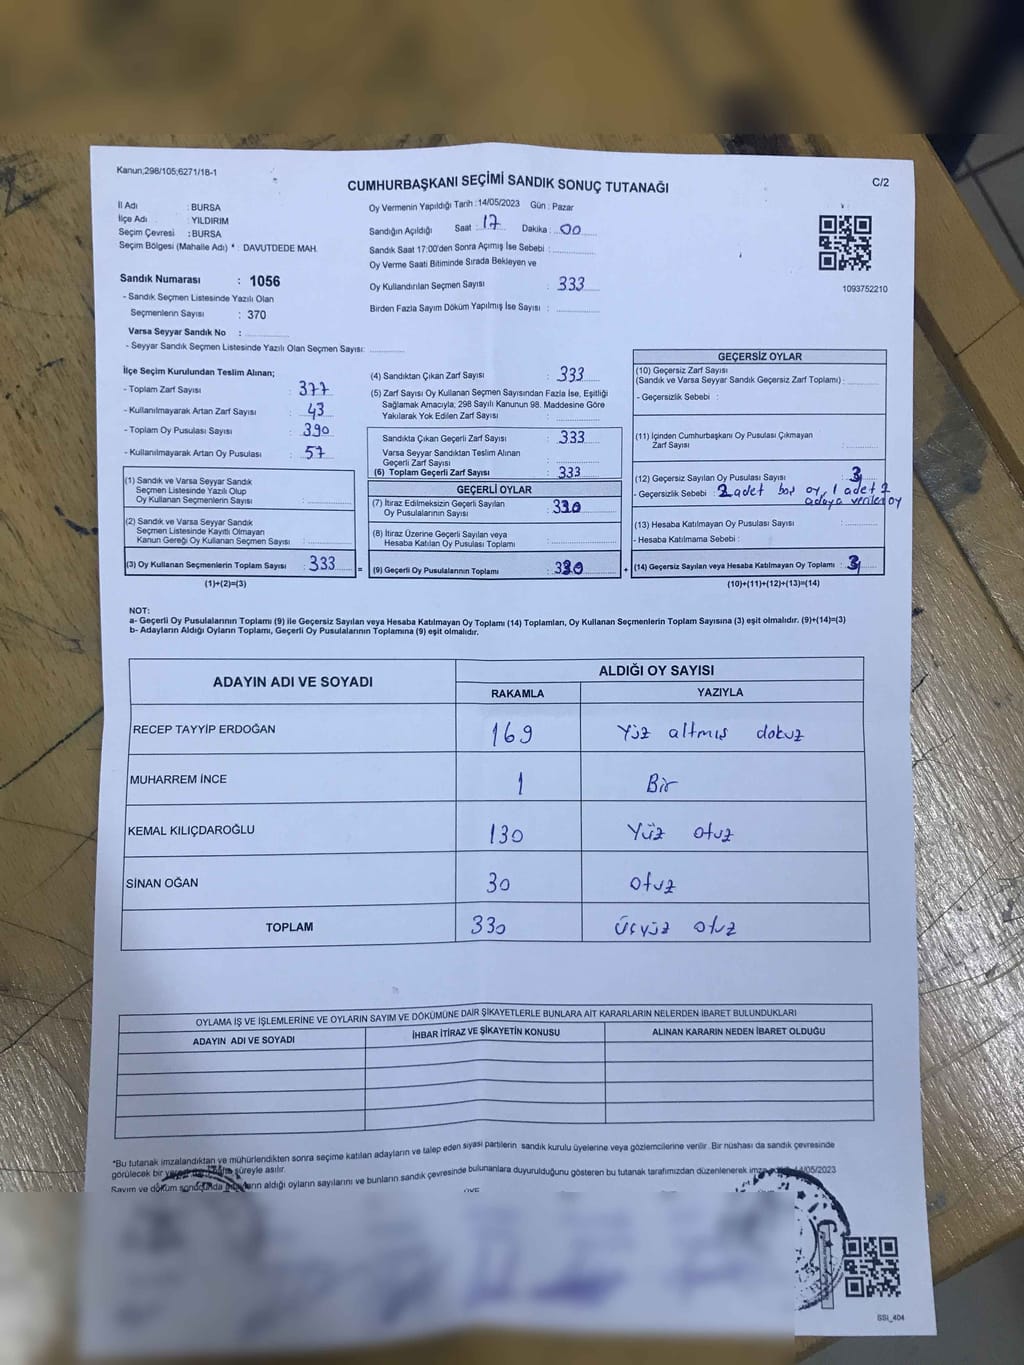 Kanun;298/105;6271/18-1
CUMHURBAŞKANI SEÇİMİ SANDIK SONUÇ TUTANAĞI
C/2
İl Adı : BURSA
İlçe Adı : YILDIRIM
Seçim Çevresi : BURSA
Seçim Bölgesi (Mahalle Adı) * : DAVUTDEDE MAH.
Sandık Numarası : 1056
- Sandık Seçmen Listesinde Yazılı Olan
Seçmenlerin Sayısı : 370
Varsa Seyyar Sandık No :
- Seyyar Sandık Seçmen Listesinde Yazılı Olan Seçmen Sayısı:
Oy Vermenin Yapıldığı Tarih : 14/05/2023 Gün : Pazar
Sandığın Açıldığı Saat : 17 Dakika : 00
Sandık Saat 17:00'den Sonra Açılmış İse Sebebi :
Oy Verme Saati Bitiminde Sırada Bekleyen ve
Oy Kullandırılan Seçmen Sayısı : 333
Birden Fazla Sayım Döküm Yapılmış İse Sayısı :
1093752210
İlçe Seçim Kurulundan Teslim Alınan;
- Toplam Zarf Sayısı : 377
- Kullanılmayarak Artan Zarf Sayısı : 43
- Toplam Oy Pusulası Sayısı : 390
- Kullanılmayarak Artan Oy Pusulası : 57
(1) Sandık ve Varsa Seyyar Sandık
Seçmen Listesinde Yazılı Olup
Oy Kullanan Seçmenlerin Sayısı :
(2) Sandık ve Varsa Seyyar Sandık
Seçmen Listesinde Kayıtlı Olmayan
Kanun Gereği Oy Kullanan Seçmen Sayısı :
(3) Oy Kullanan Seçmenlerin Toplam Sayısı : 333 =
(1)+(2)=(3)
(4) Sandıktan Çıkan Zarf Sayısı : 333
(5) Zarf Sayısı Oy Kullanan Seçmen Sayısından Fazla İse, Eşitliği
Sağlamak Amacıyla; 298 Sayılı Kanunun 98. Maddesine Göre
Yakılarak Yok Edilen Zarf Sayısı :
Sandıkta Çıkan Geçerli Zarf Sayısı : 333
Varsa Seyyar Sandıktan Teslim Alınan
Geçerli Zarf Sayısı :
(6) Toplam Geçerli Zarf Sayısı : 333
GEÇERLİ OYLAR
(7) İtiraz Edilmeksizin Geçerli Sayılan
Oy Pusulalarının Sayısı : 330
(8) İtiraz Üzerine Geçerli Sayılan veya
Hesaba Katılan Oy Pusulası Toplamı :
(9) Geçerli Oy Pusulalarının Toplamı : 330 +
GEÇERSİZ OYLAR
(10) Geçersiz Zarf Sayısı
(Sandık ve Varsa Seyyar Sandık Geçersiz Zarf Toplamı) :
- Geçersizlik Sebebi :
(11) İçinden Cumhurbaşkanı Oy Pusulası Çıkmayan
Zarf Sayısı :
(12) Geçersiz Sayılan Oy Pusulası Sayısı : 3
- Geçersizlik Sebebi : 2 adet boş oy, 1 adet 2
adaya verilen oy
(13) Hesaba Katılmayan Oy Pusulası Sayısı :
- Hesaba Katılmama Sebebi :
(14) Geçersiz Sayılan veya Hesaba Katılmayan Oy Toplamı : 3
(10)+(11)+(12)+(13)=(14)
NOT:
a- Geçerli Oy Pusulalarının Toplamı (9) ile Geçersiz Sayılan veya Hesaba Katılmayan Oy Toplamı (14) Toplamları, Oy Kullanan Seçmenlerin Toplam Sayısına (3) eşit olmalıdır. (9)+(14)=(3)
b- Adayların Aldığı Oyların Toplamı, Geçerli Oy Pusulalarının Toplamına (9) eşit olmalıdır.
ADAYIN ADI VE SOYADI
ALDIĞI OY SAYISI
RAKAMLA YAZIYLA
RECEP TAYYİP ERDOĞAN 169 Yüz altmış dokuz
MUHARREM İNCE 1 Bir
KEMAL KILIÇDAROĞLU 130 Yüz otuz
SİNAN OĞAN 30 otuz
TOPLAM 330 üçyüz otuz
OYLAMA İŞ VE İŞLEMLERİNE VE OYLARIN SAYIM VE DÖKÜMÜNE DAİR ŞİKAYETLERLE BUNLARA AİT KARARLARIN NELERDEN İBARET BULUNDUKLARI
ADAYIN ADI VE SOYADI İHBAR İTİRAZ VE ŞİKAYETİN KONUSU ALINAN KARARIN NEDEN İBARET OLDUĞU
*Bu tutanak imzalandıktan ve mühürlendikten sonra seçime katılan adayların ve talep eden siyasi partilerin sandık kurulu üyelerine veya gözlemcilerine verilir. Bir nüshası da sandık çevresinde
görülecek bir süreyle asılır.
Sayım ve döküm sonucunda aldığı oyların sayılarını ve bunların sandık çevresinde bulunanlara duyurulduğunu gösteren bu tutanak tarafımızdan düzenlenerek 14/05/2023
SSİ_404